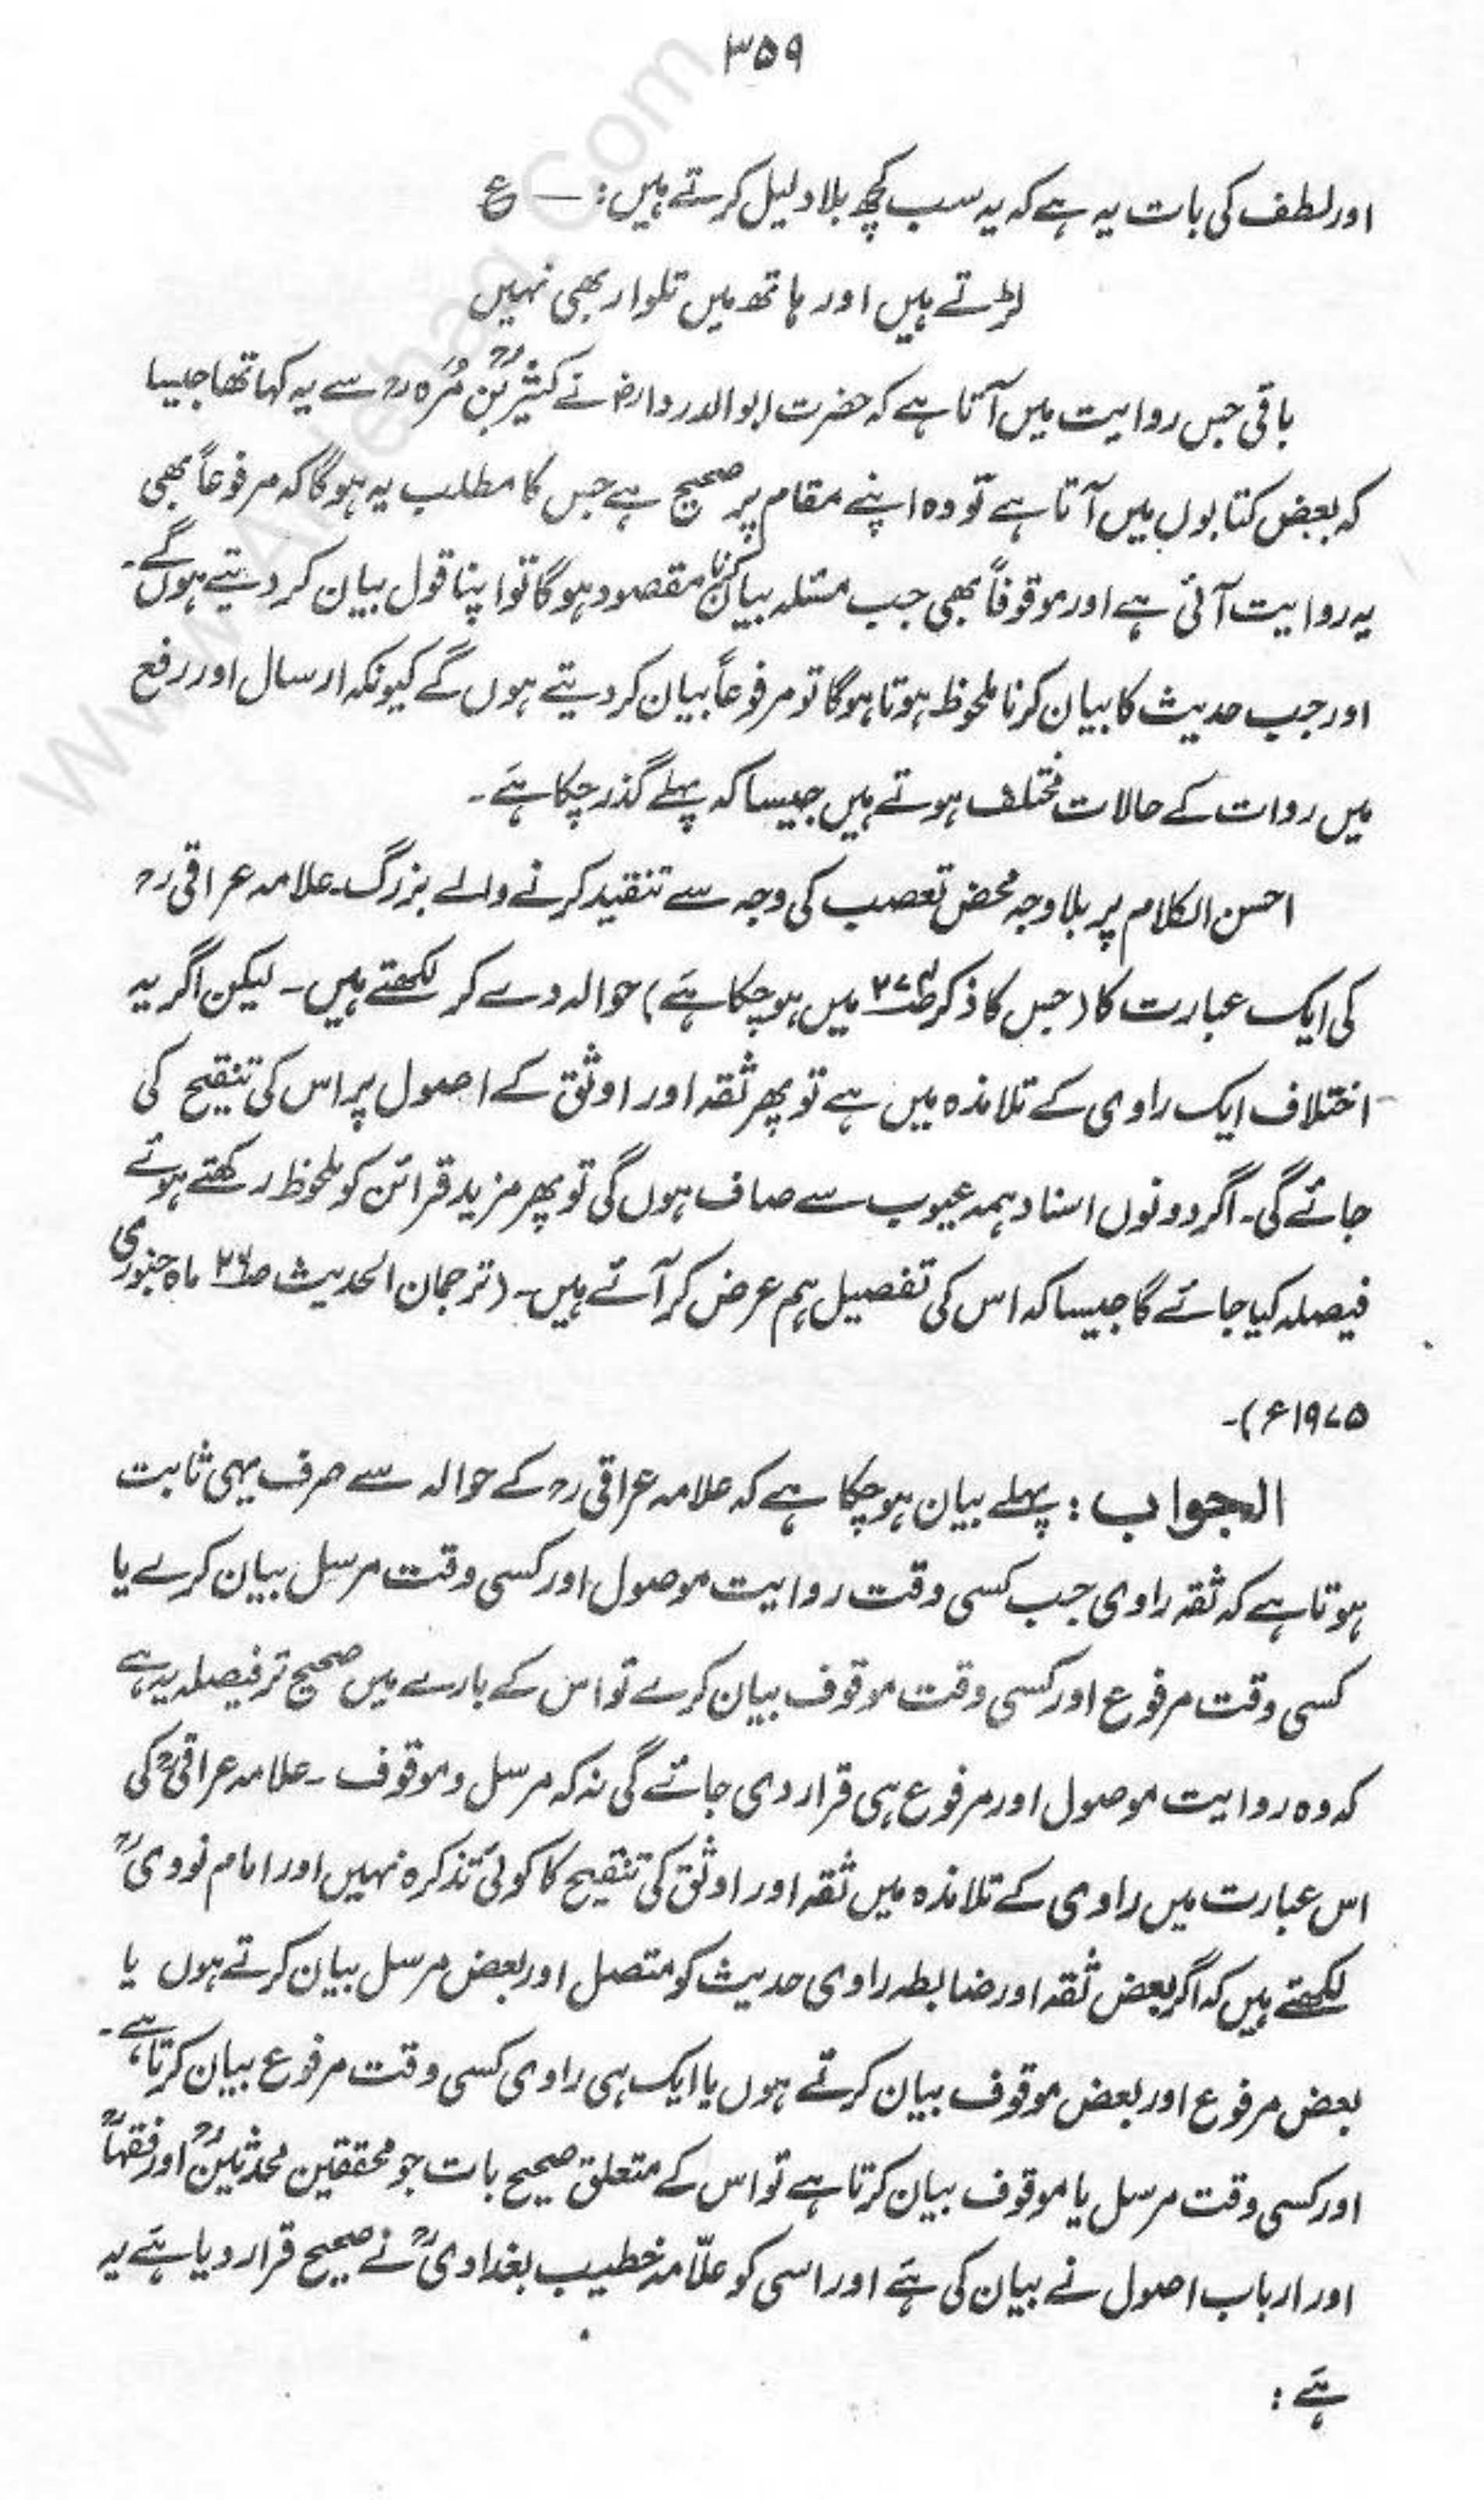 ۳۵۹
اور لطف کی بات یہ ہے کہ یہ سب کچھ بلا دلیل کرتے ہیں: — ع
لڑتے ہیں اور ہاتھ میں تلوار بھی نہیں
باقی جس روایت میں آتا ہے کہ حضرت ابوالدرداءؓ نے کثیرؒ بن مُرّہ رح سے یہ کہا تھا جیسا
کہ بعض کتابوں میں آتا ہے تو وہ اپنے مقام پر صحیح ہے جس کا مطلب یہ ہوگا کہ مرفوعاً بھی
یہ روایت آئی ہے اور موقوفاً بھی جب مسئلہ بیان کرنا مقصود ہوگا تو اپنا قول بیان کر دیتے ہوں گے۔
اور جب حدیث کا بیان کرنا ملحوظ ہوتا ہوگا تو مرفوعاً بیان کر دیتے ہوں گے کیونکہ ارسال اور رفع
میں روات کے حالات مختلف ہوتے ہیں جیسا کہ پہلے گذر چکا ہے۔
احسن الکلام پر بلا وجہ محض تعصب کی وجہ سے تنقید کرنے والے بزرگ۔ علامہ عراقی رح
کی ایک عبارت کا (جس کا ذکر میں ہو چکا ہے) حوالہ دے کر لکھتے ہیں۔ لیکن اگر یہ
اختلاف ایک راوی کے تلامذہ میں ہے تو پھر ثقہ اور اوثق کے اصول پر اس کی تنقیح کی
جائے گی۔ اگر دونوں اسناد ہمہ عیوب سے صاف ہوں گی تو پھر مزید قرائن کو ملحوظ رکھتے ہوئے
فیصلہ کیا جائے گا جیسا کہ اس کی تفصیل ہم عرض کر آئے ہیں۔ (ترجمان الحدیث ص۲۶ ماہ جنوری
۱۹۷۵ء)۔
الجواب: پہلے بیان ہو چکا ہے کہ علامہ عراقی رح کے حوالہ سے صرف یہی ثابت
ہوتا ہے کہ ثقہ راوی جب کسی وقت روایت موصول اور کسی وقت مرسل بیان کرے یا
کسی وقت مرفوع اور کسی وقت موقوف بیان کرے تو اس کے بارے میں صحیح تر فیصلہ یہ ہے
کہ وہ روایت موصول اور مرفوع ہی قرار دی جائے گی نہ کہ مرسل و موقوف۔ علامہ عراقیؒ کی
اس عبارت میں راوی کے تلامذہ میں ثقہ اور اوثق کی تنقیح کا کوئی تذکرہ نہیں اور امام نوویؒ
لکھتے ہیں کہ اگر بعض ثقہ اور ضابطہ راوی حدیث کو متصل اور بعض مرسل بیان کرتے ہوں یا
بعض مرفوع اور بعض موقوف بیان کرتے ہوں یا ایک ہی راوی کسی وقت مرفوع بیان کرتا ہے۔
اور کسی وقت مرسل یا موقوف بیان کرتا ہے تو اس کے متعلق صحیح بات جو محققین محدثینؒ اور فقہاؒ
اور ارباب اصول نے بیان کی ہے اور اسی کو علّامہ خطیب بغدادیؒ نے صحیح قرار دیا ہے یہ
ہے: